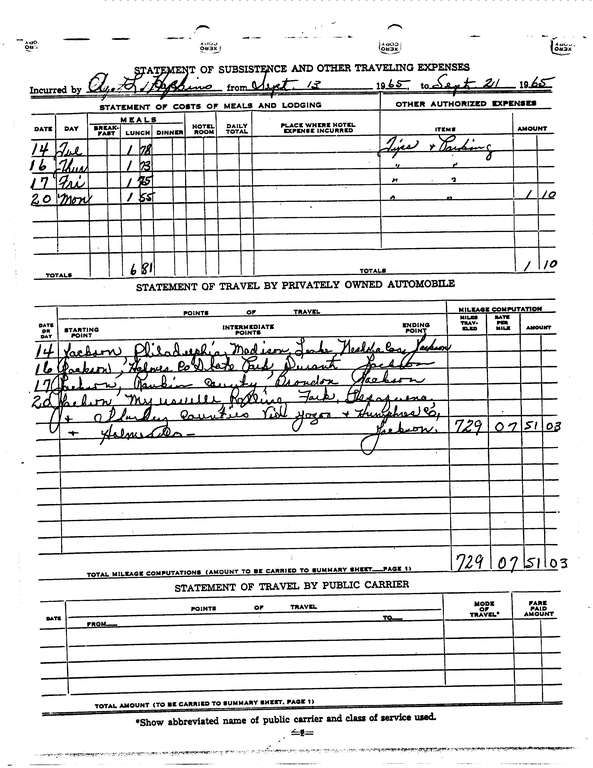 XEROX COPY XEROX COPY XEROX COPY XEROX COPY
STATEMENT OF SUBSISTENCE AND OTHER TRAVELING EXPENSES
Incurred by L. Hopkins from Sept. 13 1965, to Sept 21 1965
STATEMENT OF COSTS OF MEALS AND LODGING OTHER AUTHORIZED EXPENSES
DATE DAY MEALS BREAK-FAST LUNCH DINNER HOTEL ROOM DAILY TOTAL PLACE WHERE HOTEL EXPENSE INCURRED ITEMS AMOUNT
14 Tue 1 78 Tips + Parking
16 Thur 1 73 " "
17 Fri 1 75 " "
20 Mon 1 55 " " 1 10
TOTALS 6 81 TOTALS 1 10
STATEMENT OF TRAVEL BY PRIVATELY OWNED AUTOMOBILE
POINTS OF TRAVEL MILEAGE COMPUTATION
DATE OR DAY STARTING POINT INTERMEDIATE POINTS ENDING POINT MILES TRAV-ELED RATE PER MILE AMOUNT
14 Jackson, Philadelphia, Madison, Leake, Neshoba Cos, Jackson
16 Jackson, Holmes Co State Park, Durant Jackson
17 Jackson, Rankin County, Brandon Jackson
20 Jackson, Mayersville Rolling Fork, Issaquena,
+ Sharkey Counties via Yazoo + Humphreys Co,
+ Holmes Co - Jackson. 729 07 51 03
TOTAL MILEAGE COMPUTATIONS (AMOUNT TO BE CARRIED TO SUMMARY SHEET PAGE 1) 729 07 51 03
STATEMENT OF TRAVEL BY PUBLIC CARRIER
DATE POINTS OF TRAVEL MODE OF TRAVEL* FARE PAID AMOUNT
FROM TO
TOTAL AMOUNT (TO BE CARRIED TO SUMMARY SHEET, PAGE 1)
*Show abbreviated name of public carrier and class of service used.